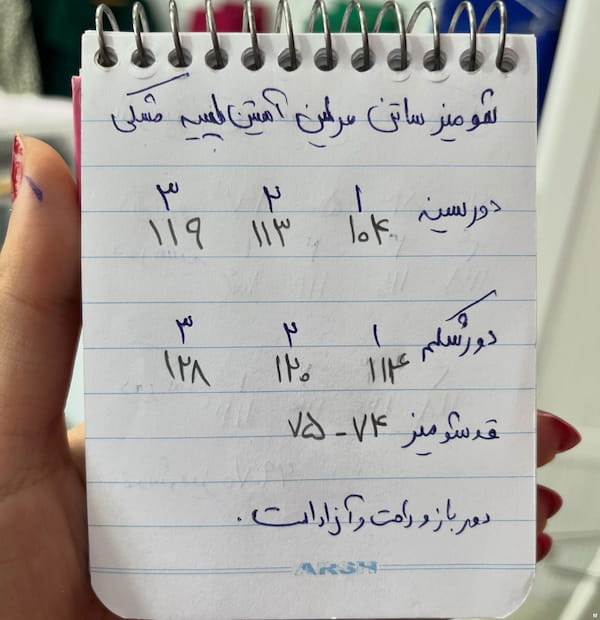 شومیز ساتن آستین پلیسه مشکی
دور سینه ۱ ۲ ۳
۱۰۴ ۱۱۳ ۱۱۹
دور شکم ۱ ۲ ۳
۱۱۴ ۱۲۰ ۱۲۸
قد شومیز ۷۴-۷۵
دور بازو راحت و آزاد است.
ARSH